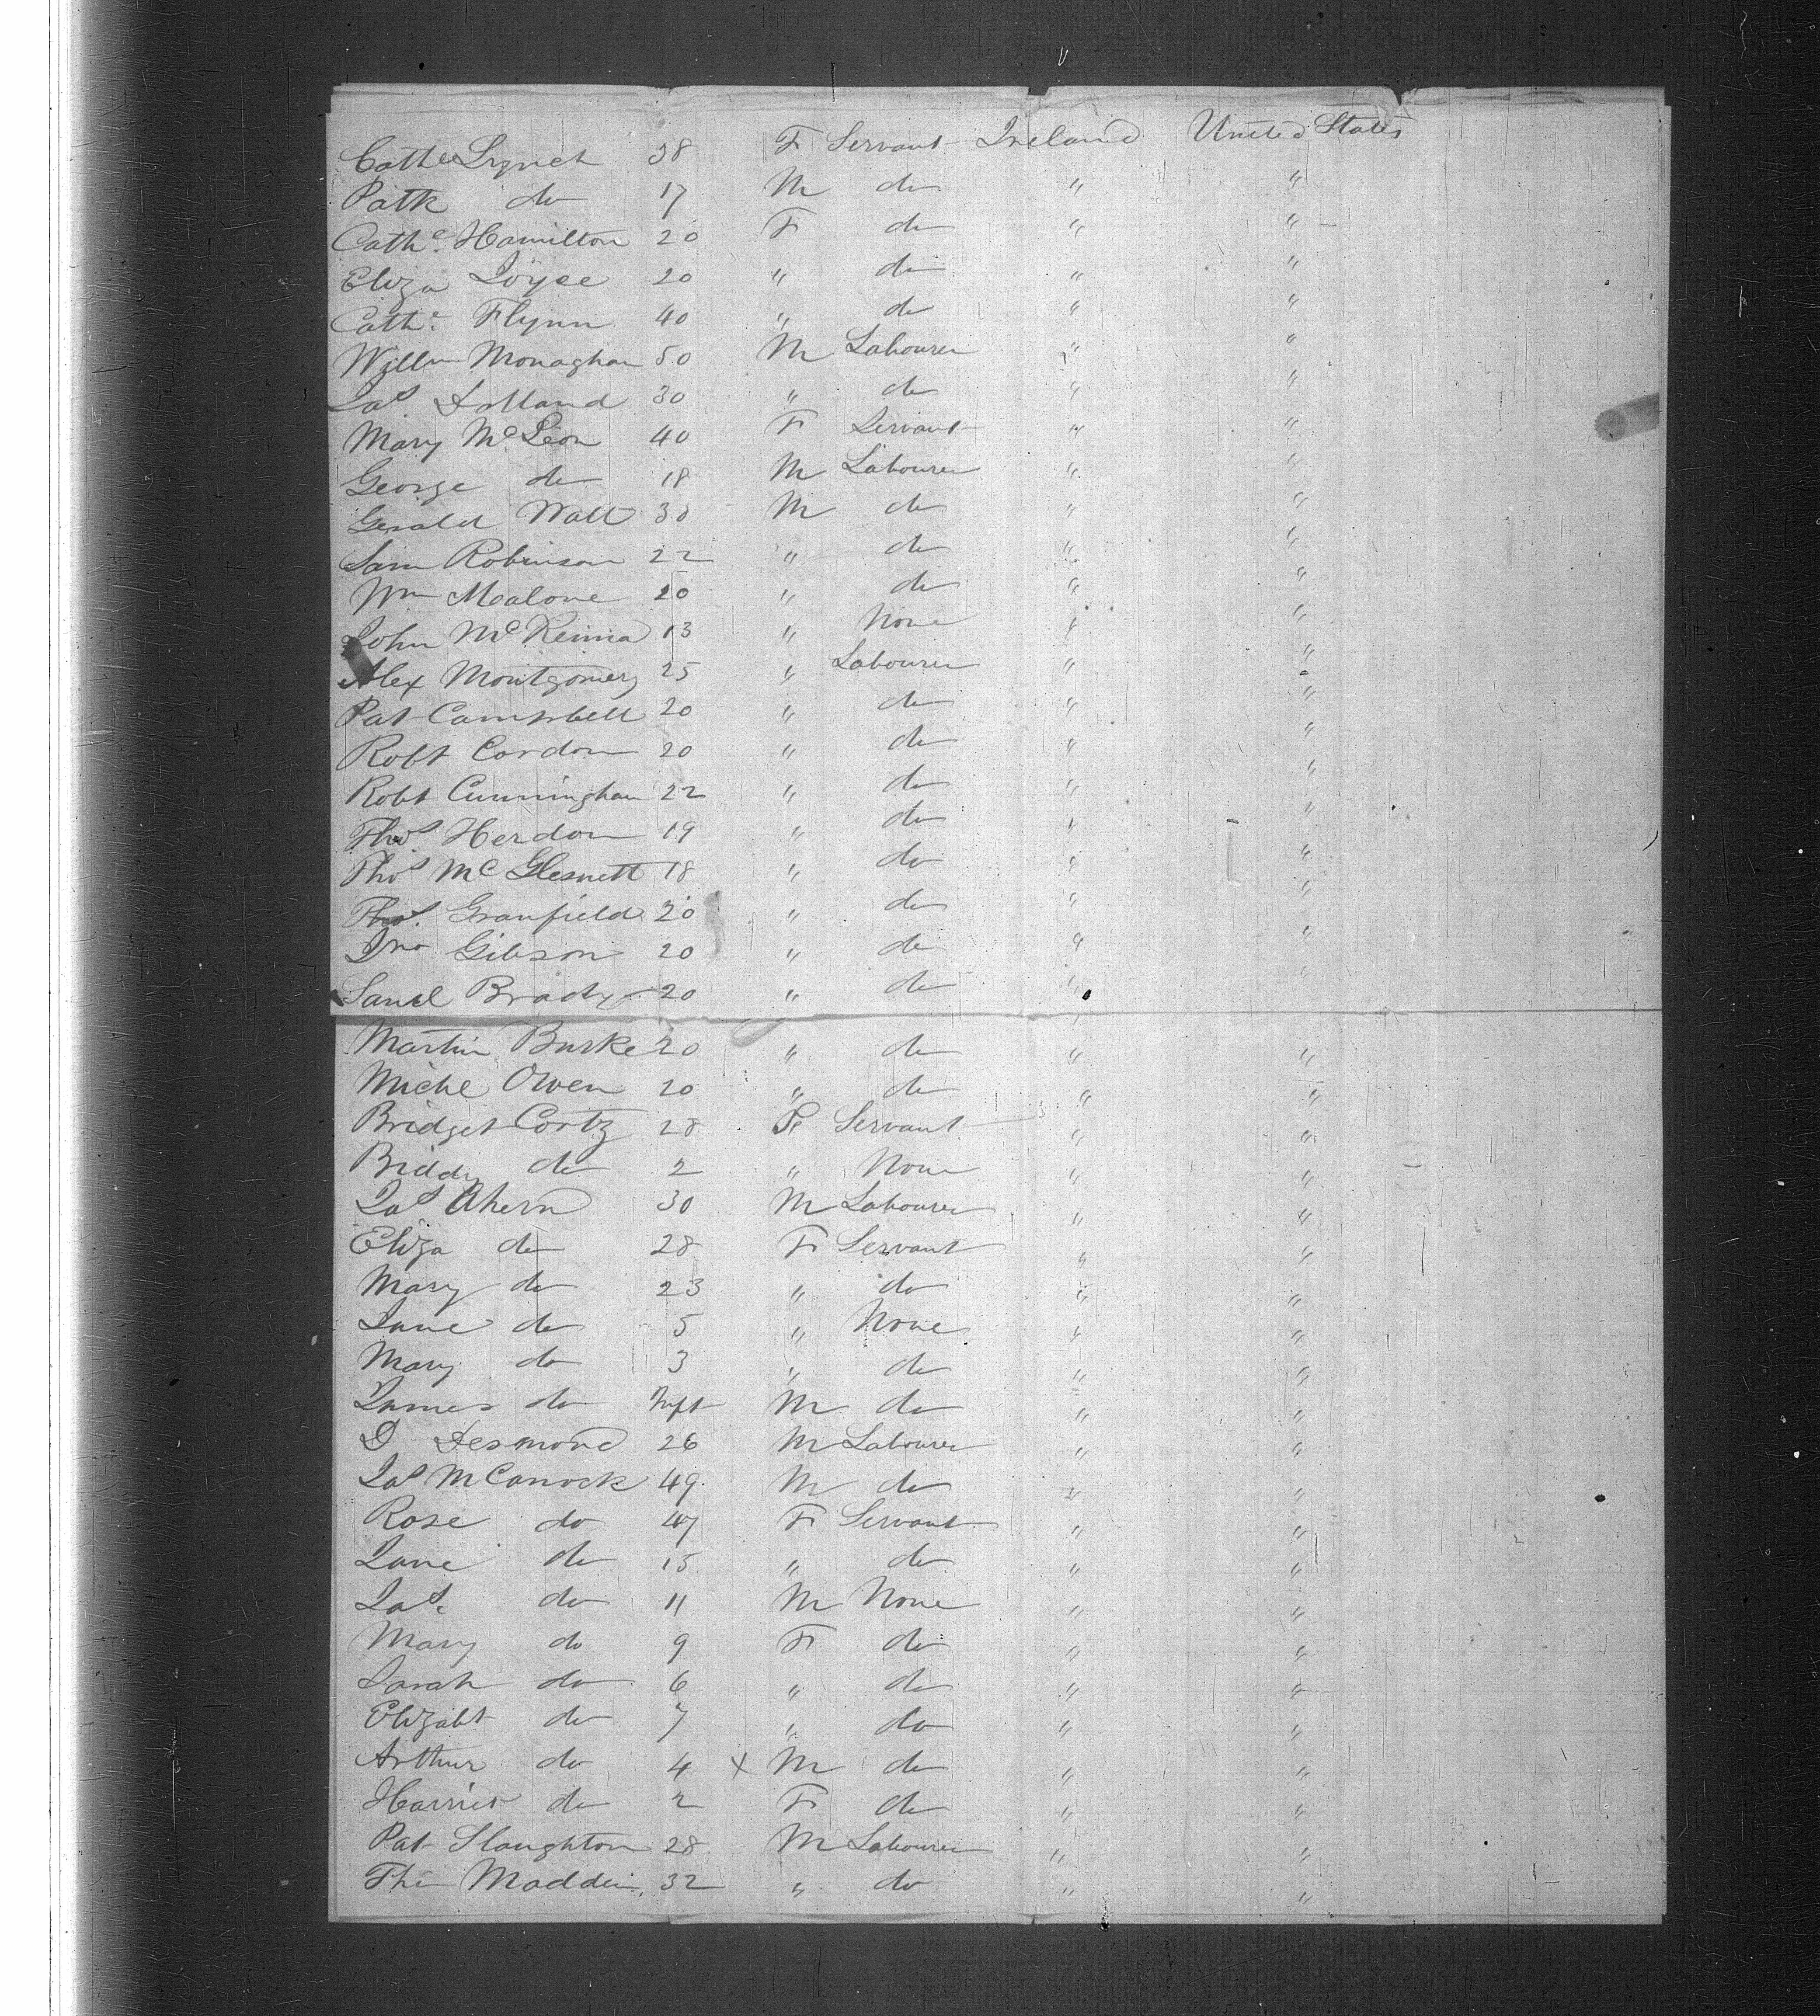 Cathe Lynch 38 F Servant Ireland United States
Patk do 17 M do " "
Cathe Hamilton 20 F do " "
Eliza Joyce 20 " do " "
Cathe Flynn 40 " do " "
Willm Monaghan 50 M Labourer " "
Jas Holland 30 " do " "
Mary McLeon 40 F Servant " "
George do 18 M Labourer " "
Gerald Wall 30 M do " "
Sam Robinson 22 " do " "
Wm Malone 20 " do " "
John McKenna 13 " None " "
Alex Montgomery 25 " Labourer " "
Pat Campbell 20 " do " "
Robt Cordon 20 " do " "
Robt Cunningham 22 " do " "
Thos Herdon 19 " do " "
Thos Mc 18 " do " "
Thos Granfield 20 " do " "
Jno Gibson 20 " do " "
Saml Brady 20 " do " "
Martin Burke 20 " do " "
Michl Owen 20 " do " "
Bridget 28 F Servant " "
Biddy do 2 " None " "
Jas Ahern 30 M Labourer " "
Eliza do 28 F Servant " "
Mary do 23 " do " "
Jane do 5 " None " "
Mary do 3 " do " "
James do Inft M do " "
D Desmond 26 M Labourer " "
Jas McCanock 49 M do " "
Rose do 47 F Servant " "
Jane do 15 " do " "
Jas do 11 M None " "
Mary do 9 F do " "
Sarah do 6 " do " "
Elizabt do 7 " do " "
Arthur do 4 x M do " "
Harriet do 2 F do " "
Pat Slaughton 28 M Labourer " "
Madden 32 " do " "